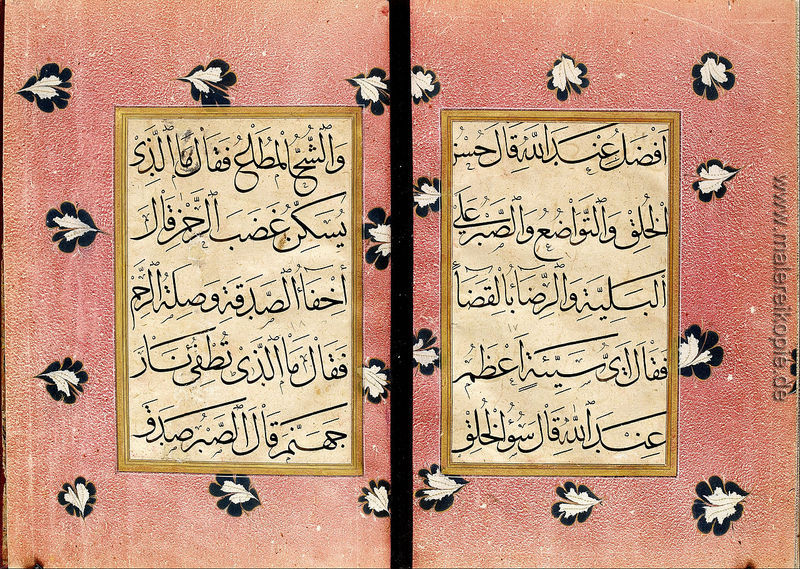 افضل عند الله قال حسن
الخلق والتواضع والصبر على
البلية والرضا بالقضأ
فقال اى سيئة اعظم
عند الله قال سؤ الخلق
والشح المطاع فقال ما الذى
يسكن غضب الرحمن قال
أخفأ الصدقة وصلة الرحم
فقال ما الذى تطفئ نار
جهنم قال الصبر صدق
www.malereikopie.de